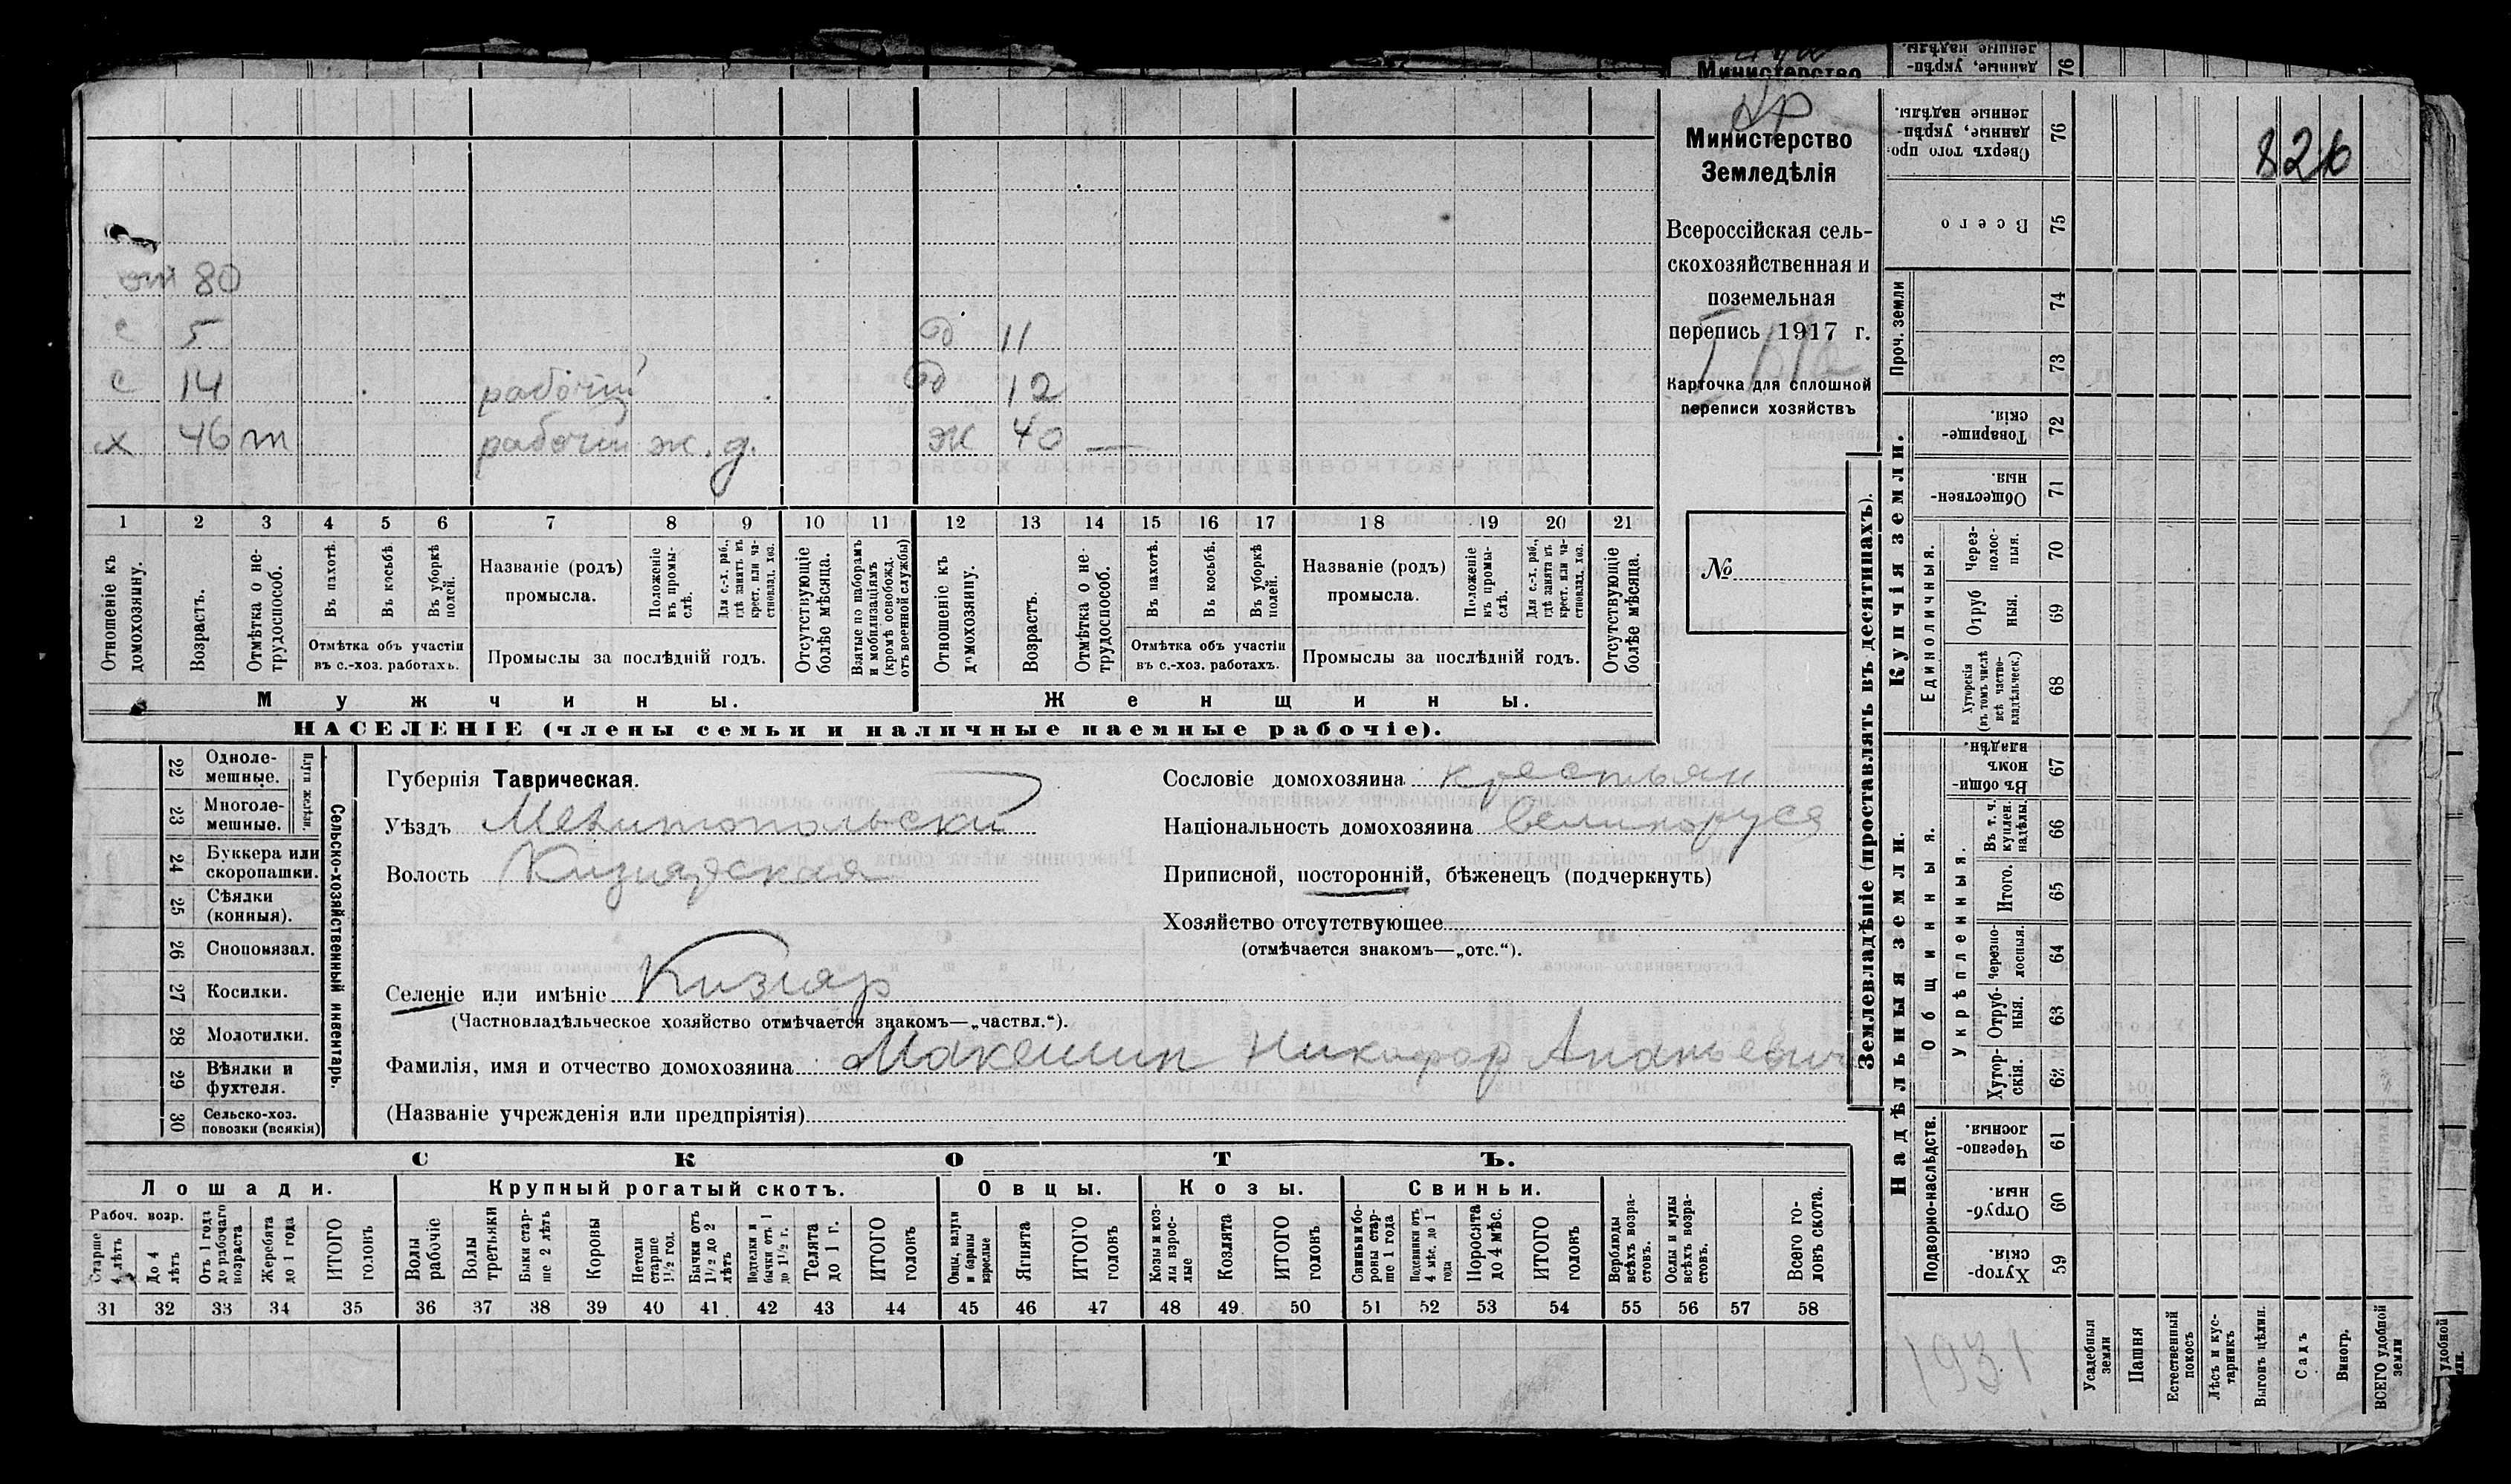 826
Министерство
Земледѣлія
Всероссійская сель-
скохозяйственная и
поземельная
перепись 1917 г.
Карточка для сплошной
переписи хозяйствъ
№
от 80
с 5 д 11
с 14 рабочій д 12
х 46 т рабочій ж.д. ж 40 —
1 2 3 4 5 6 7 8 9 10 11 12 13 14 15 16 17 18 19 20 21
Отношеніе къ домохозяину.
Возрастъ.
Отмѣтка о не-трудоспособ.
Въ пахотѣ.
Въ косьбѣ.
Въ уборкѣ полей.
Отмѣтка объ участіи
въ с.-хоз. работахъ.
Названіе (родъ)
промысла.
Положеніе въ промы-слѣ.
Для с.-х. раб., гдѣ занятъ въ крест. или ча-стновлад. хоз.
Промыслы за послѣдній годъ.
Отсутствующіе болѣе мѣсяца.
Взятые по наборамъ и мобилизаціямъ (кромѣ освобожд. отъ военной службы)
Отношеніе къ домохозяину.
Возрастъ.
Отмѣтка о не-трудоспособ.
Въ пахотѣ.
Въ косьбѣ.
Въ уборкѣ полей.
Отмѣтка объ участіи
въ с.-хоз. работахъ.
Названіе (родъ)
промысла.
Положеніе въ промы-слѣ.
Для с.-х. раб., гдѣ занята въ крест. или ча-стновлад. хоз.
Промыслы за послѣдній годъ.
Отсутствующіе болѣе мѣсяца.
Мужчины. Женщины.
НАСЕЛЕНІЕ (члены семьи и наличные наемные рабочіе).
Сельско-хозяйственный инвентарь.
Плуги желѣзн.
22 Одноле-мешные.
23 Многоле-мешные.
24 Буккера или скоропашки.
25 Сѣялки (конныя).
26 Сноповязал.
27 Косилки.
28 Молотилки.
29 Вѣялки и фухтеля.
30 Сельско-хоз. повозки (всякія)
Губернія Таврическая.
Уѣздъ Мелитопольскій
Волость Кизіярская
Селеніе или имѣніе Кизіяр
(Частновладѣльческое хозяйство отмѣчается знакомъ—„частвл.“).
Фамилія, имя и отчество домохозяина Макешин Никифор Ананьевич
(Названіе учрежденія или предпріятія)
Сословіе домохозяина крестьян
Національность домохозяина великорусс
Приписной, посторонній, бѣженецъ (подчеркнуть)
Хозяйство отсутствующее
(отмѣчается знакомъ—„отс.“).
СКОТЪ.
Лошади. Крупный рогатый скотъ. Овцы. Козы. Свиньи.
Рабоч. возр.
Старше 4 лѣтъ
До 4 лѣтъ
Отъ 1 года до рабочаго возраста
Жеребята до 1 года
ИТОГО головъ
Волы рабочіе
Волы третьяки
Быки стар-ше 2 лѣтъ
Коровы
Нетели старше 1½ год.
Бычки отъ 1½ до 2 лѣтъ
Подтелки и бычки отъ 1 до 1½ г.
Телята до 1 г.
ИТОГО головъ
Овцы, валухи и бараны взрослые
Ягнята
ИТОГО головъ
Козы и коз-лы взрос-лые
Козлята
ИТОГО головъ
Свиньи и бо-роны стар-ше 1 года
Подсвинки отъ 4 мѣс. до 1 года
Поросята до 4 мѣс.
ИТОГО головъ
Верблюды всѣхъ возра-стовъ.
Ослы и мулы всѣхъ возра-стовъ.
Всего го-ловъ скота.
31 32 33 34 35 36 37 38 39 40 41 42 43 44 45 46 47 48 49 50 51 52 53 54 55 56 57 58
Землевладѣніе (проставлять въ десятинахъ).
Сверхъ того про-данные, укрѣп-ленные надѣлы. 76
Всего 75
Проч. земли
74
73
Купчія земли.
Товарище-скія. 72
Обществен-ныя 71
Единоличныя.
Через-полос-ныя. 70
Отруб ныя. 69
Хуторскія (въ томъ числѣ всѣ частно-владѣльческ.) 68
Надѣльныя земли.
Общинныя.
Въ общи номъ владѣн. 67
Укрѣпленныя.
Въ т. ч. куплен. надѣлы. 66
Итого. 65
Черезпо-лосныя. 64
Отруб-ныя. 63
Хутор-скія. 62
Подворно-наслѣдств.
Черезпо-лосныя. 61
Отруб-ныя. 60
Хутор-скія. 59
1931
Усадебныя земли
Пашня
Естественный покосъ
Лѣсъ и кус-тарникъ
Выгонъ цѣлин.
Садъ
Виногр.
ВСЕГО удобной земли